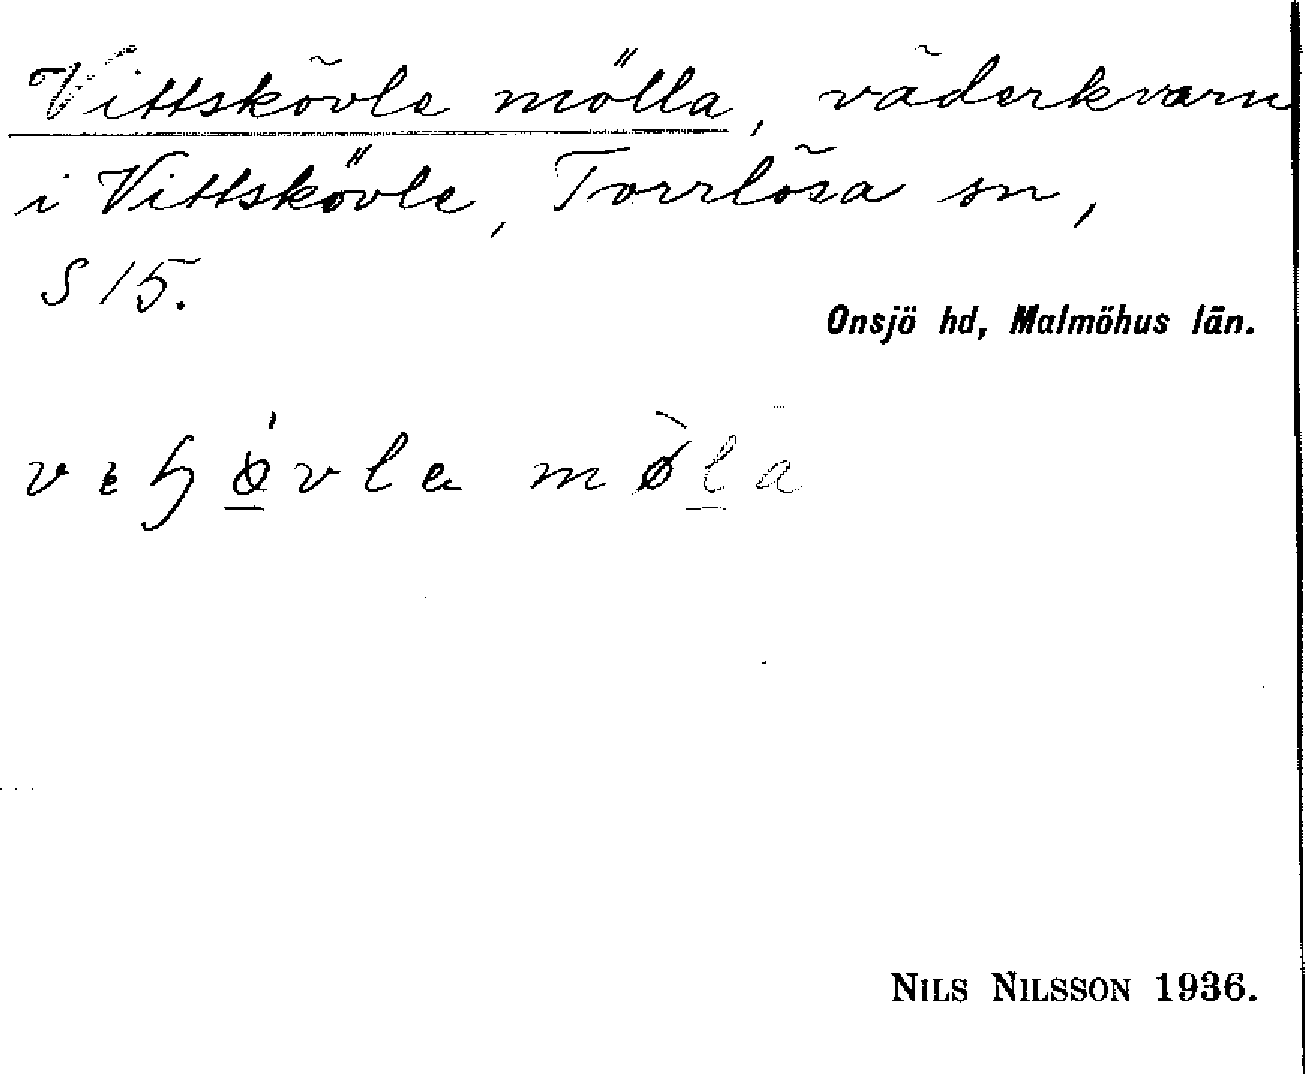 Vittskövle mölla, väderkvarn
i Vittskövle, Torrlösa sn,
S 15.
Onsjö hd, Malmöhus län.
møla
NILS NILSSON 1936.